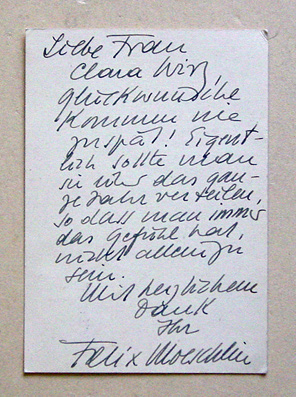 Liebe Frau
Clara Wirz,
glückwünsche
kommen nie
zu spät! Eigent-
lich sollte man
sie über das gan-
ze Jahr verteilen,
so dass man immer
das gefühl hat,
nicht allein zu
sein.
Mit herzlichem
Dank
Ihr
Felix Moeschlin